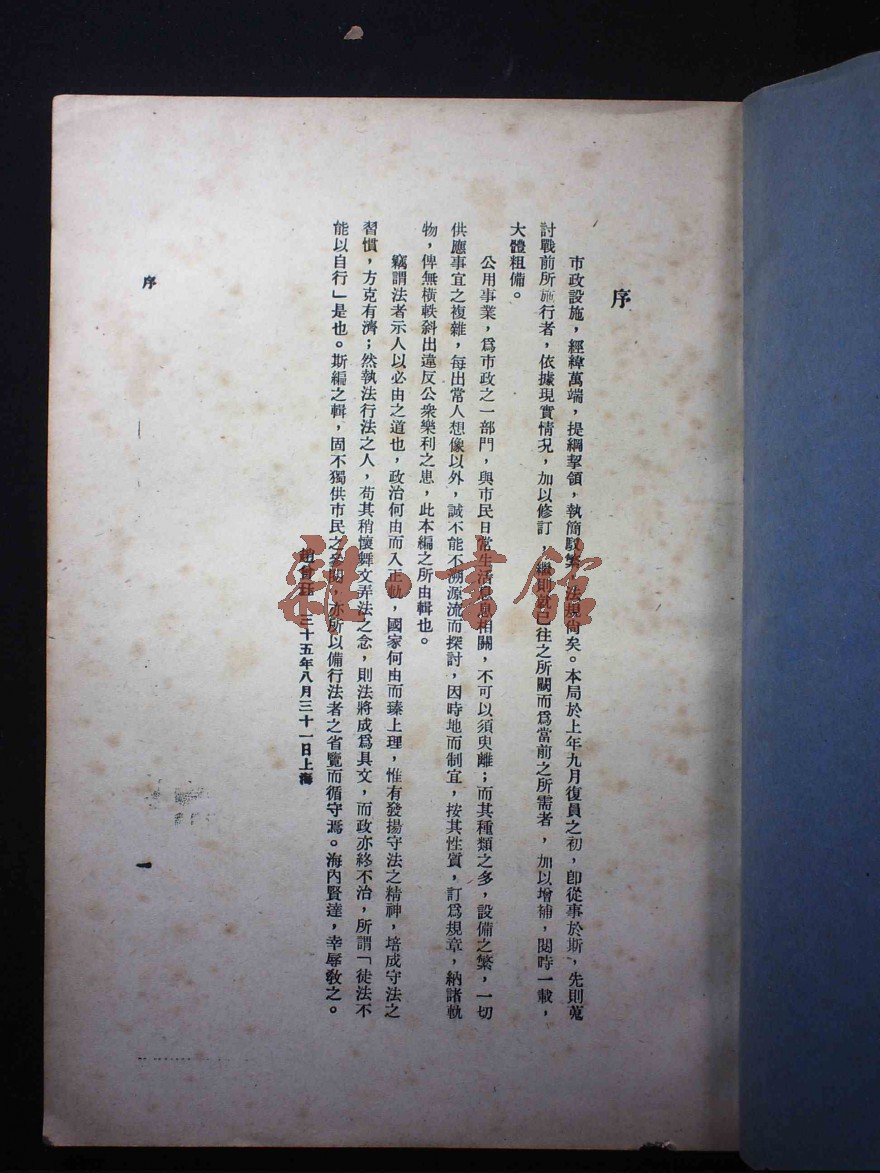 序
市政設施，經緯萬端，提綱挈領，執簡馭繁，法規尙矣。本局於上年九月復員之初，卽從事於斯，先則蒐
討戰前所施行者，依據現實情况，加以修訂，繼則就已往之所闕而爲當前之所需者，加以增補，閱時一載，
大體粗備。
公用事業，爲市政之一部門，與市民日常生活息息相關，不可以須臾離；而其種類之多，設備之繁，一切
供應事宜之複雜，每出常人想像以外，誠不能不溯源流而探討，因時地而制宜，按其性質，訂爲規章，納諸軌
物，俾無橫軼斜出違反公衆樂利之患，此本編之所由輯也。
竊謂法者示人以必由之道也，政治何由而入正軌，國家何由而臻上理，惟有發揚守法之精神，培成守法之
習慣，方克有濟；然執法行法之人，苟其稍懷舞文弄法之念，則法將成爲具文，而政亦終不治，所謂「徒法不
能以自行」是也。斯編之輯，固不獨供市民之參閱，亦所以備行法者之省覽而循守焉。海內賢達，幸辱敎之。
趙曾珏 三十五年八月三十一日上海
序
一
雜·書館